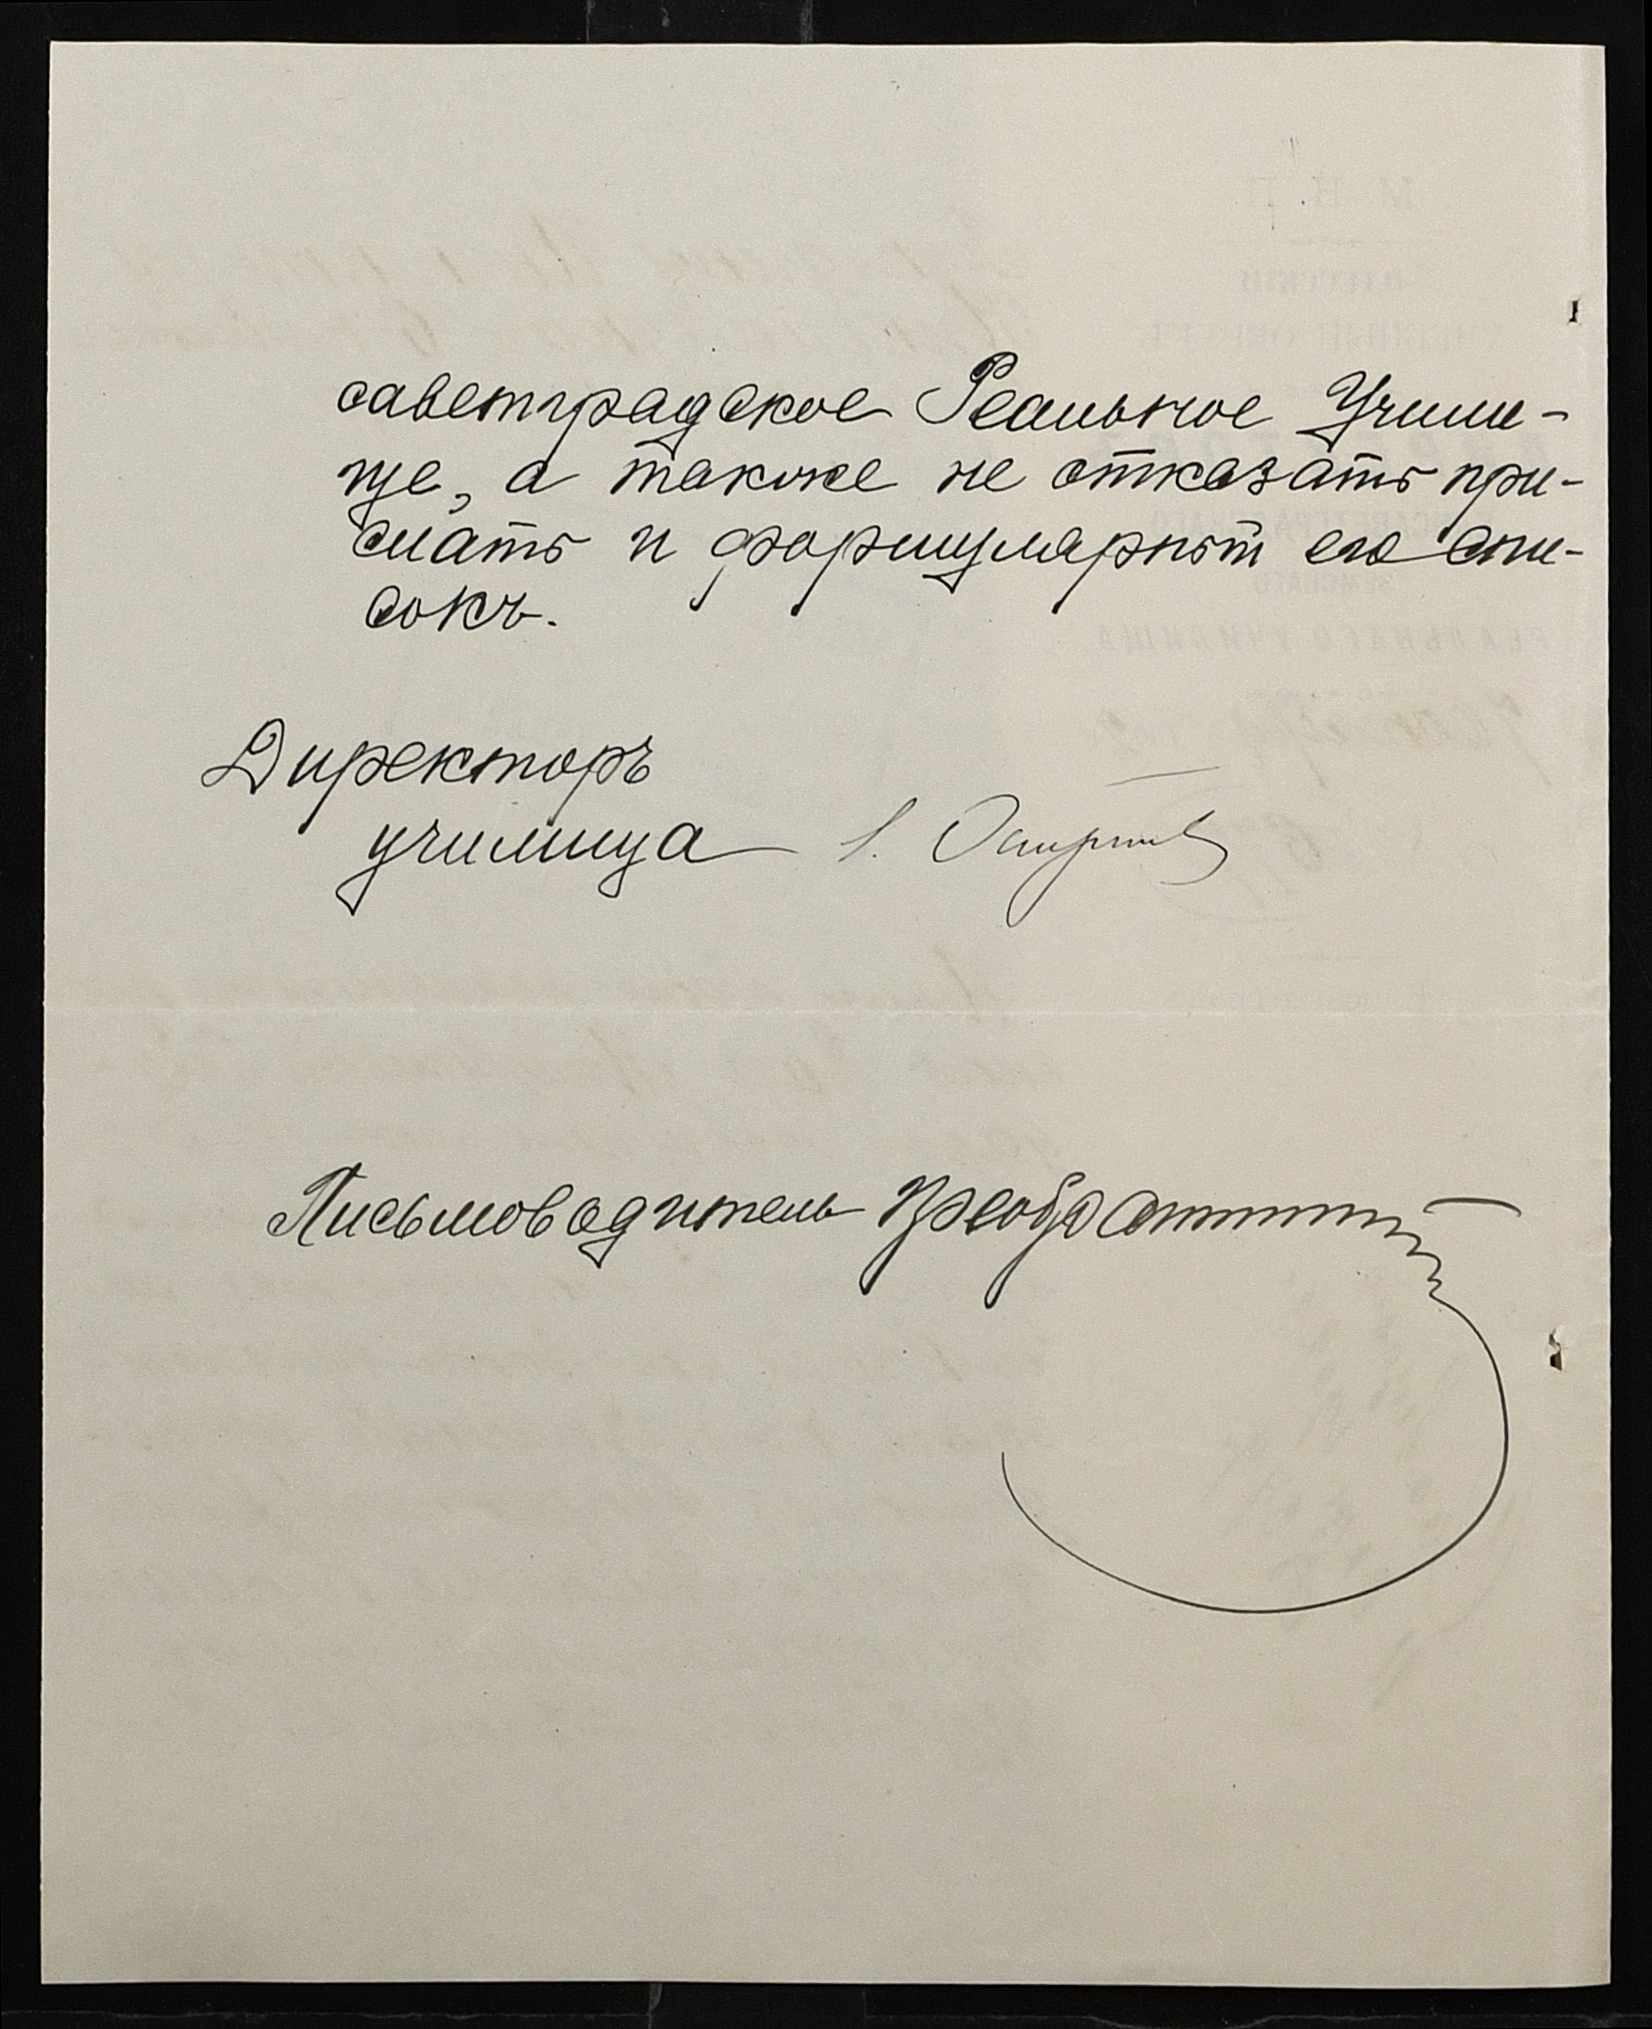 саветградское Реальное Учили-
ще, а также не отказать при-
слать и формулярный его спи-
сокъ.
Директоръ
училища
Письмоводитель